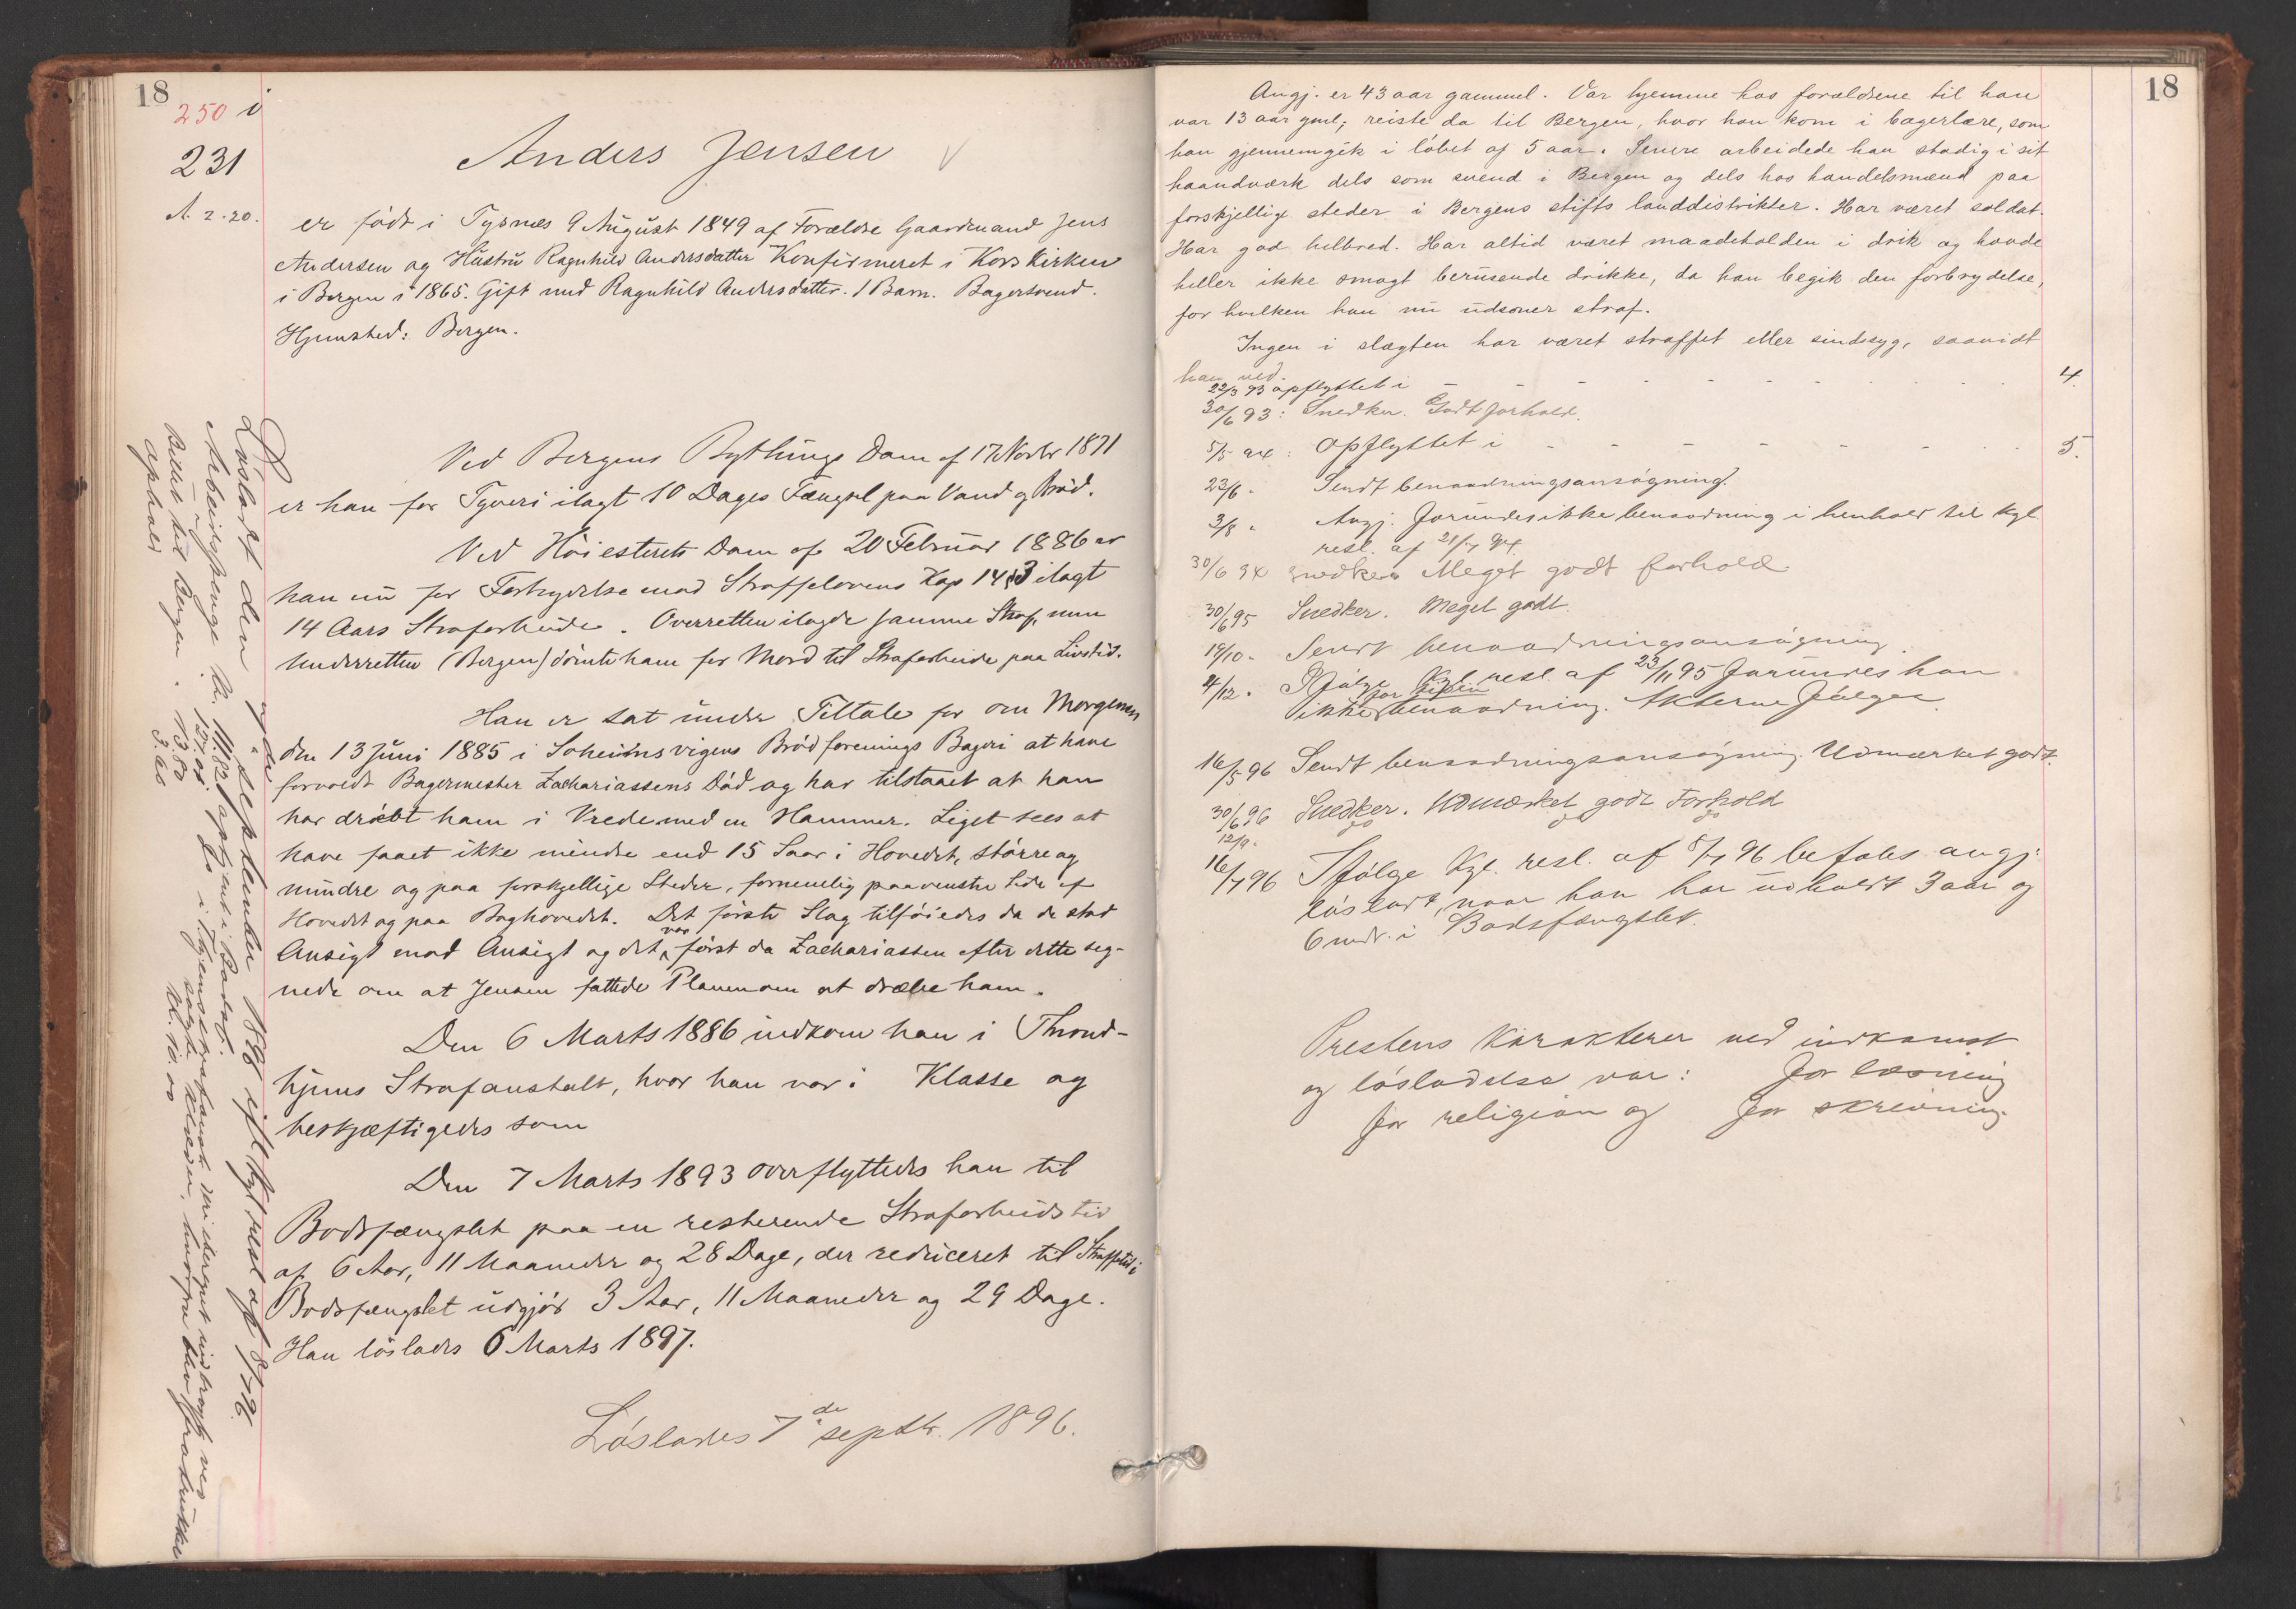 18
250 i
231
A. 2. 20.
Anders Jensen V
er född i Tysnes 9 August 1849 af Forældre Gaardmand Jens
Andersen og Hustru Ragnhild Andersdatter Konfirmeret i Korskirken
i Bergen i 1865. Gift med Ragnhild Andersdatter. 1 Barn. Bagersvend.
Hjemsted: Bergen.
Ved Bergens Bythings Dom af 17 Novbr 1871
er han for Tyveri ilagt 10 Dages Fængsel paa Vand og Bröd.
Ved Höiesterets Dom af 20 Februar 1886 er
han nu for Forbrydelse mod Straffelovens Kap 14 § 3 ilagt
14 Aars Strafarbeide. Overretten ilagde samme Straf, men
Underretten (Bergen) dömte ham for Mord til Strafarbeide paa Livstid.
Han er sat under Tiltale for om Morgenen
den 13 Juni 1885 i Solheimsvigens Brödforenings Bageri at have
forvoldt Bagermester Zachariassens Död og har tilstaaet at han
har dræbt ham i Vrede med en Hammer. Liget sees at
have faaet ikke mindre end 15 Saar i Hovedet, större og
mindre og paa forskjellige Steder, fornemelig paa venstre Side af
Hovedet og paa Baghovedet. Det förste Slag tilföiedes da de stod
Ansigt mod Ansigt og det var först da Zachariassen efter dette seg-
nede om at Jensen fattede Planen om at dræbe ham.
Den 6 Marts 1886 indkom han i Thrond-
hjems Strafanstalt, hvor han var i Klasse og
beskjæftigedes som
Den 7 Marts 1893 overflyttedes han til
Bodsfængslet paa en resterende Strafarbeidstid
af 6 Aar, 11 Maaneder og 28 Dage, der reduceret til Straffetid i
Bodsfængslet udgjör 3 Aar, 11 Maaneder og 29 Dage.
Han löslades 6 Marts 1897.
Löslades 7de septbr. 1896.
Lösladt den 7de september 1896 ifl. kgl. resl. af 8/7 96.
Arbeidspenge Kr. 111.82, optjent i Bodsf.
Billet til Bergen. 13.80
ophold 3.60
18
Angj. er 43 aar gammel. Var hjemme hos forældrene til han
var 13 aar gml; reiste da til Bergen, hvor han kom i bagerlære, som
han gjennemgik i löbet af 5 aar. Senere arbeidede han stadig i sit
haandværk dels som svend i Bergen og dels hos handelsmænd paa
forskjellige steder i Bergens stifts landdistrikter. Har været soldat.
Har god helbred. Har altid været maadeholden i drik og havde
heller ikke smagt berusende drikke, da han begik den forbrydelse,
for hvilken han nu udsoner straf.
Ingen i slægten har været straffet eller sindssyg, saavidt
han ved.
22/3 93 opflyttet i - - - - - - - - - 4.
30/6 93: Snedker. Godt forhold.
5/5 94: Opflyttet i - - - - - - - 5.
23/6 - Sendt benaadningsansögning.
3/8 - Angj. forundes ikke benaadning i henhold til kgl.
resl. af 21/7 94.
30/6 94 Snedker Meget godt forhold
30/6 95 Snedker. Meget godt.
19/10 - Sendt benaadningsansögning.
4/12 - Ifölge Kgl. resl. af 23/11 95 forundes han
ikke for tiden benaadning. Akterne fölger.
16/5 96 Sendt benaadningsansögning. Udmærket godt.
30/6 96 Snedker. Udmærket godt Forhold
12/9 - do do do
16/7 96 Ifölge Kgl. resl. af 8/7 96 befales angj.
lösladt, naar han har udholdt 3 aar og
6 mdr. i Bodsfængslet.
Prestens karakterer ved indkomst
og lösladelse var: for læsning
for religion og for skrivning.